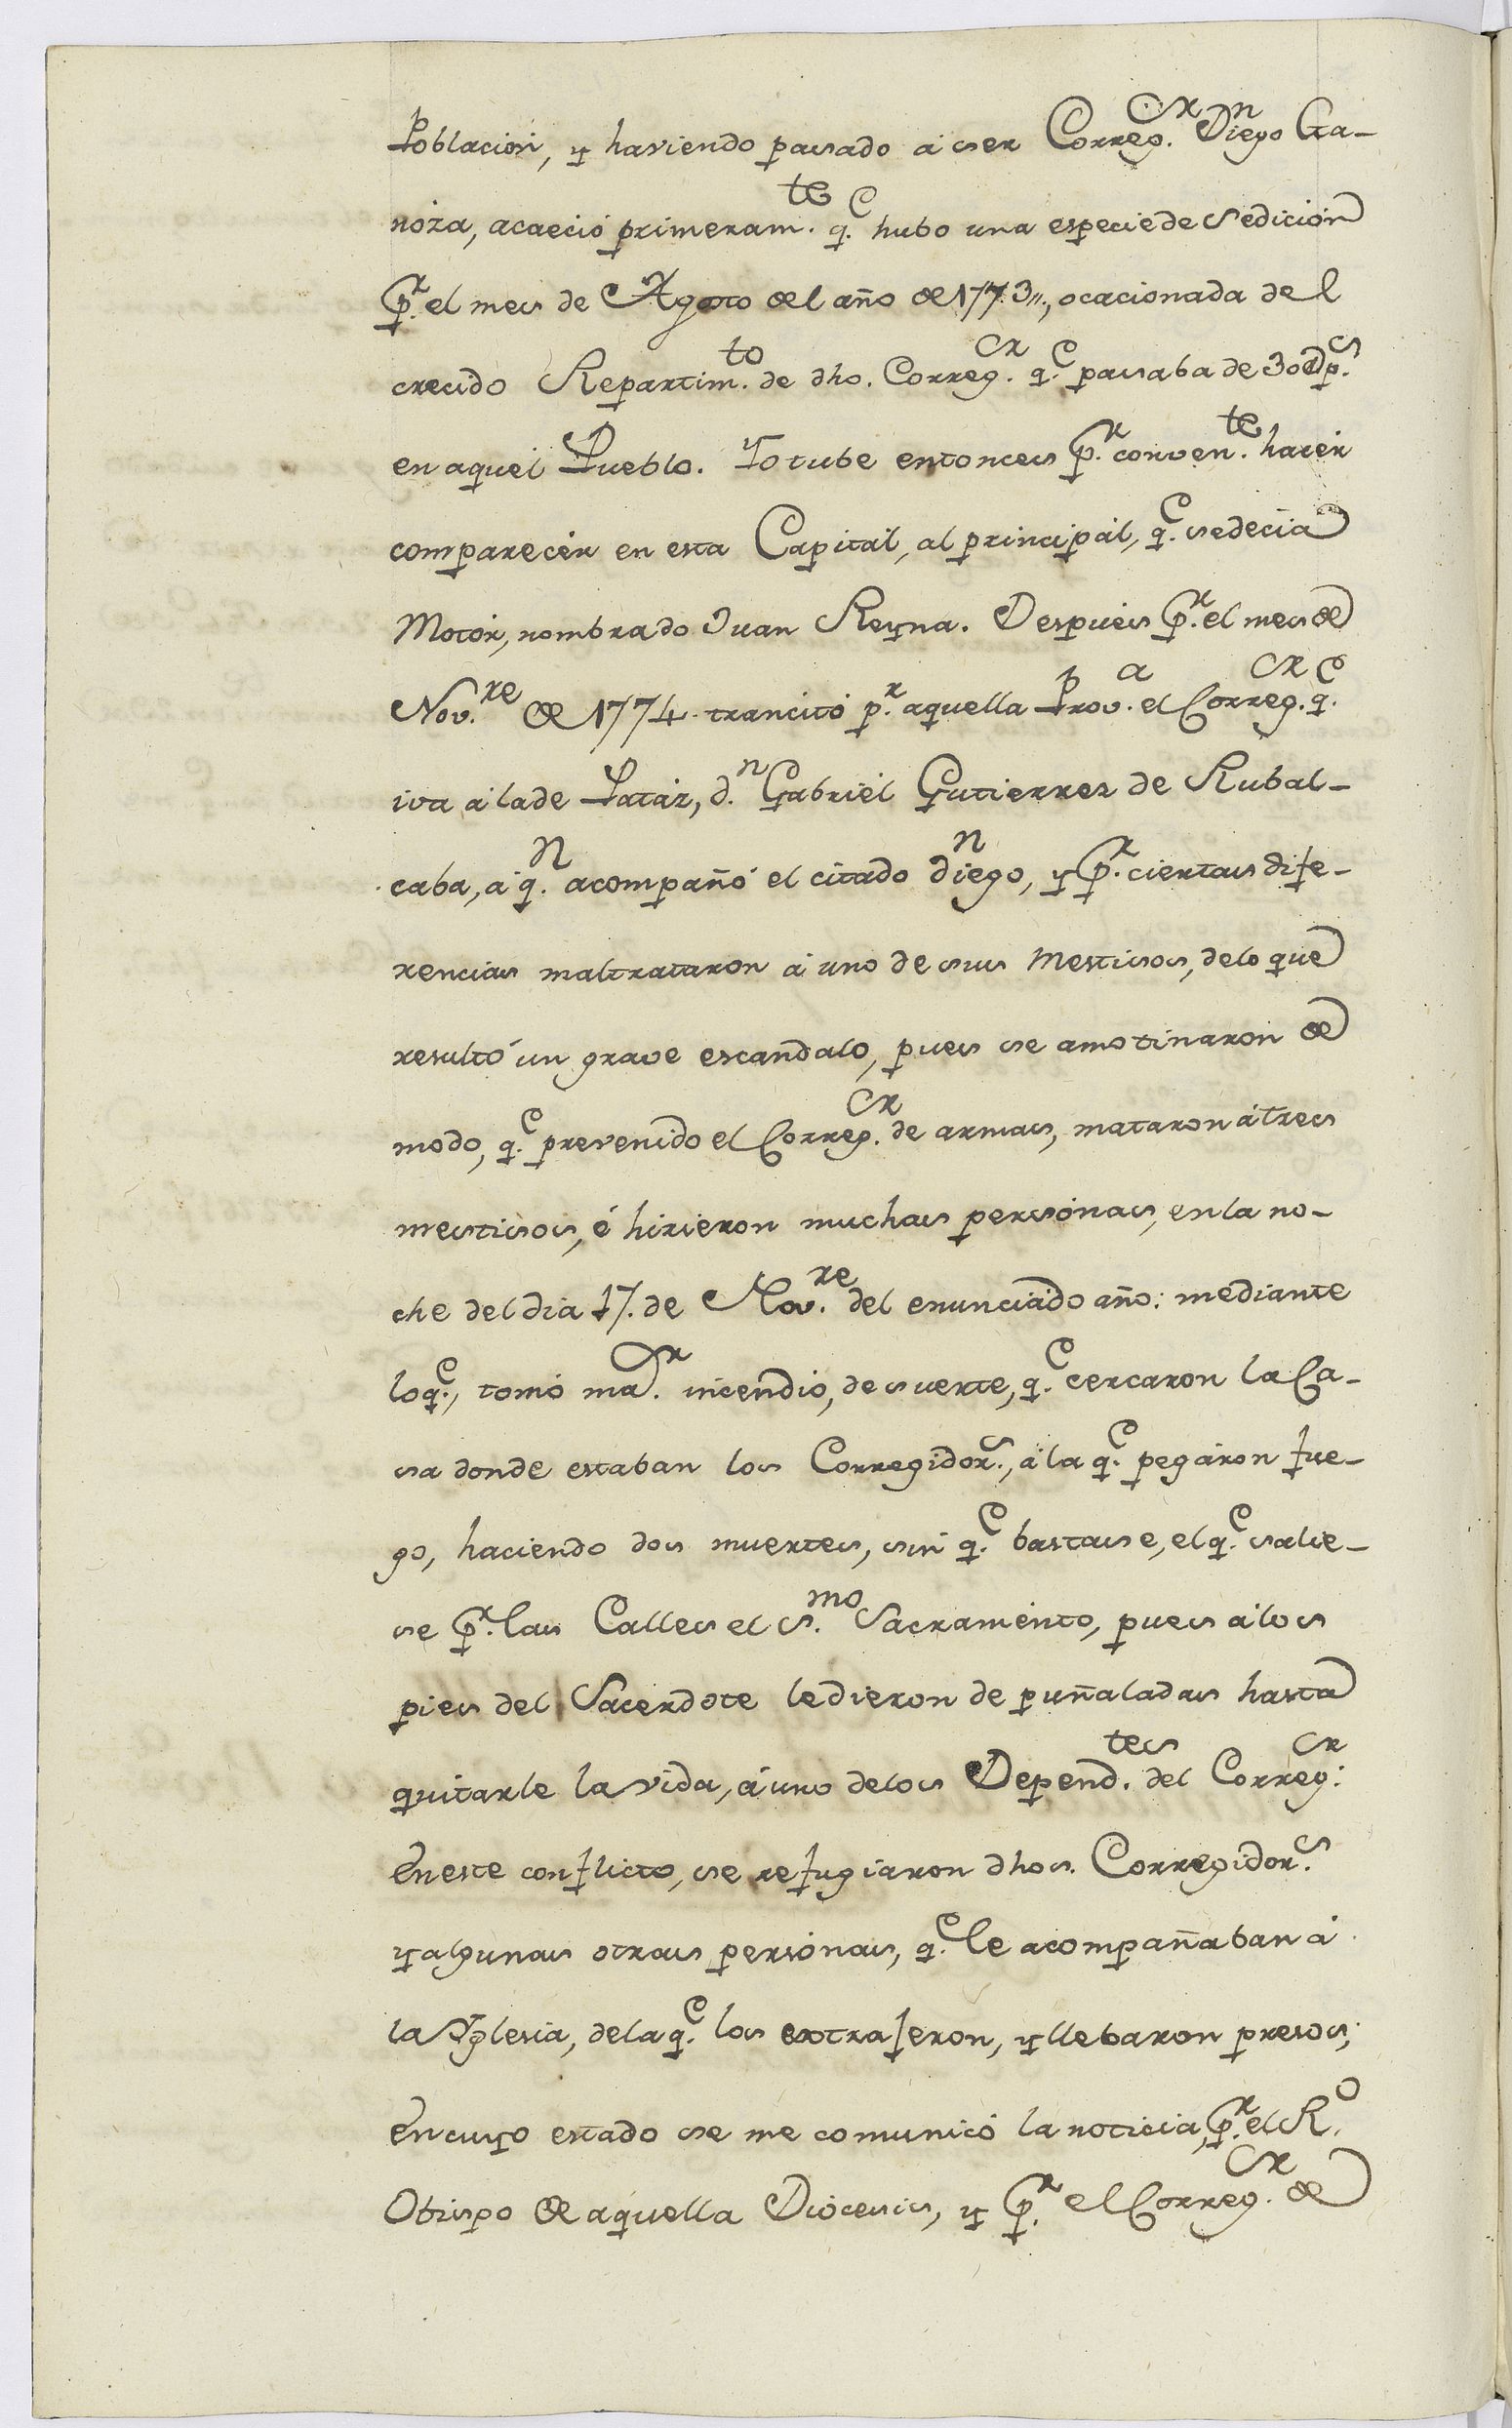 Poblacion, y haviendo pasado á ser Correg.or Diego Ga-
noza, acaeció primeram.te q.e hubo una especie de Sedicion
p.r el mes de Agosto del año de 1773,, ocacionada del
crecido Repartim.to de dho. Correg.or q.e pasaba de 30 p.s
en aquel Pueblo. Yo tube entonces p.r conven.te hacer
comparecér en esta Capital, al principal, q.e se decia
Motór, nombrado Juan Reyna. Despues p.r el mes de
Nov.re de 1774. trancitó p.r aquella Prov.a el Correg.or q.e
iva a la de Pataz, d.n Gabriél Gutierrez de Rubal-
caba, á q.n acompañó el citado d.n Diego, y p.r ciertas dife-
rencias maltrataron á uno de sus Mestisos, de lo que
resultó un grave escandalo, pues se amotinaron de
modo, q.e prevenido el Correg.or de armas, mataron á tres
mestisos, é hirieron muchas personas, en la no-
che del dia 17. de Nov.re del enunciado año: mediante
lo q.e, tomó ma.or incendio, de suerte, q.e cercaron la Ca-
sa donde estaban los Corregidor.s, á la q.e pegáron fue-
go, haciendo dos muertes, sin q.e bastase, el q.e salie-
se p.r las Calles el S.mo Sacramento, pues á los
pies del Sacerdote le dieron de puñaladas hasta
quitarle la vida, á uno de los Depend.tes del Correg.or
En este conflicto, se refugiaron dhos. Corregidor.s
y algunas otras personas, q.e le acompañaban á
la Yglesia, de la q.e los extrajeron, y llebaron presos;
En cuyo estado se me comunicó la noticia, p.r el R.o
Obispo de aquella Diocesis, y p.r el Correg.or de